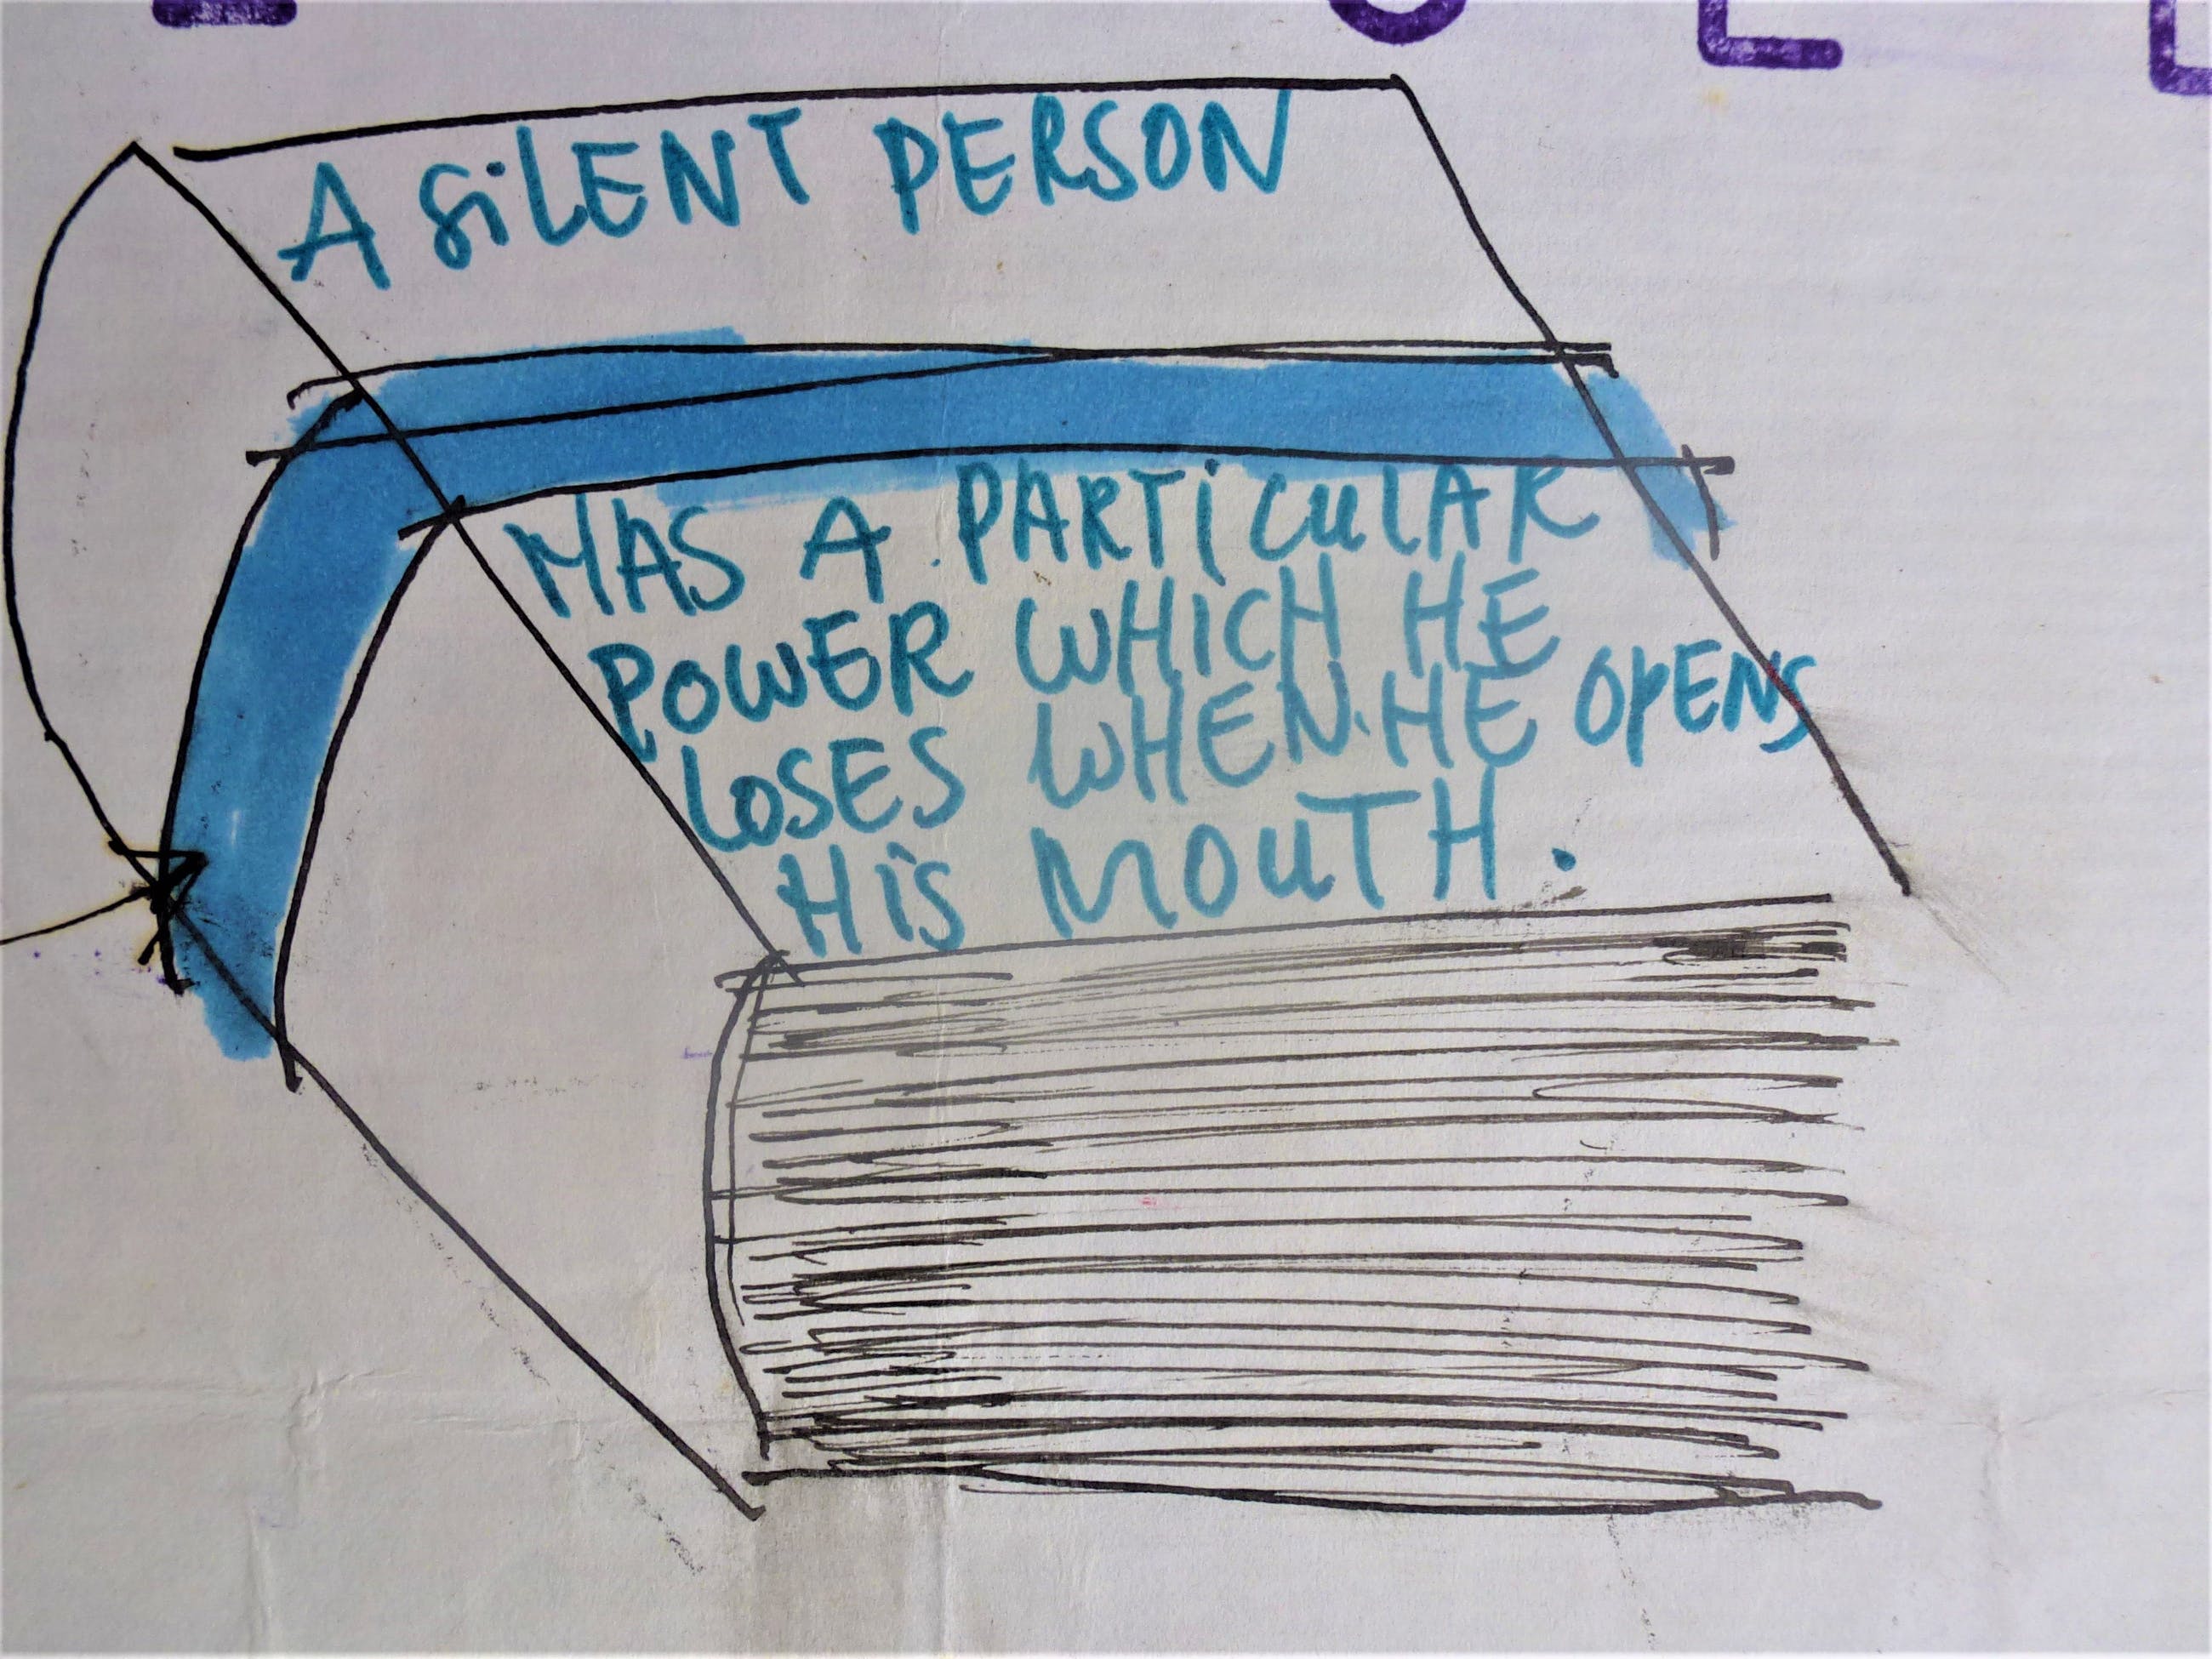 A SiLENT PERSON
HAS A PARTiCULAR
POWER WHICH HE
LOSES WHEN HE OPENS
HiS MOUTH.